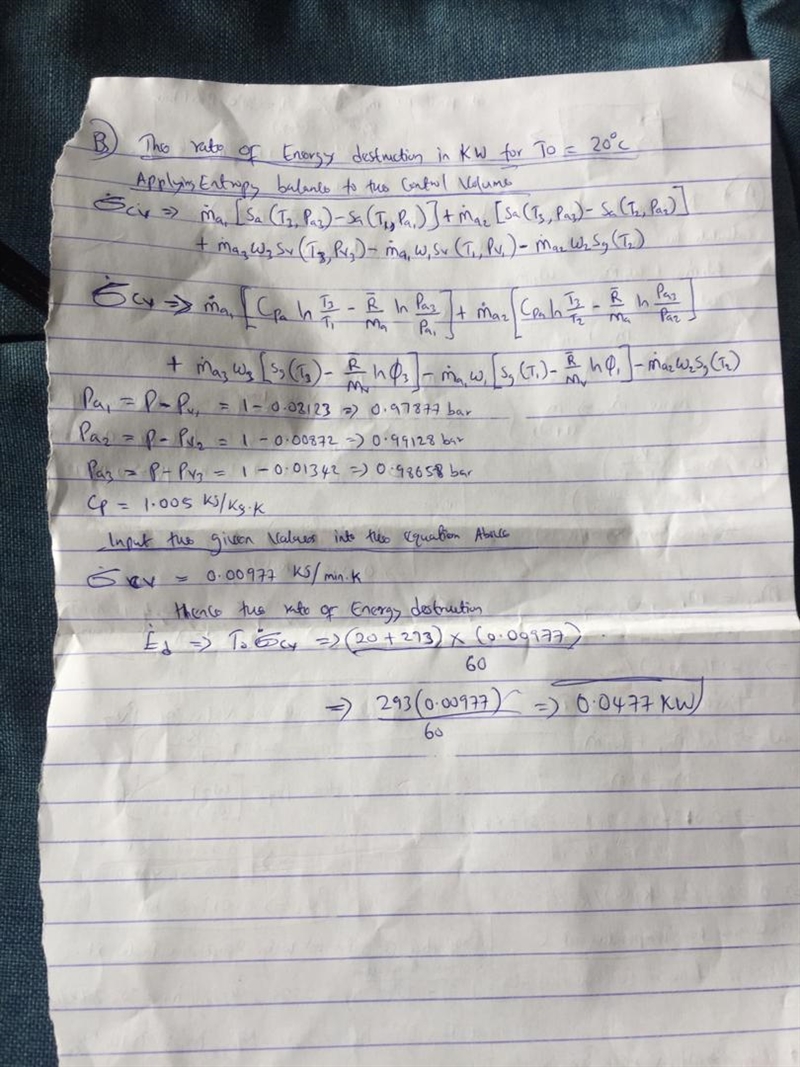 B) The rate of Energy destruction in KW for To = 20°C
Applying Entropy balance to the Control Volume
σ̇cv => ṁa₁ [Sa (T3, Pa3) - Sa (T1, Pa1)] + ṁa2 [Sa (T3, Pa3) - Sa (T2, Pa2)]
+ ṁa3 ω3 Sv (T3, Pv3) - ṁa1 ω1 Sv (T1, Pv1) - ṁa2 ω2 Sg (T2)
σ̇cv => ṁa1 [Cpa ln T3/T1 - R̄/Ma ln Pa3/Pa1] + ṁa2 [Cpa ln T3/T2 - R̄/Ma ln Pa3/Pa2]
+ ṁa3 ω3 [Sg (T3) - R̄/Mv ln ϕ3] - ṁa1 ω1 [Sg (T1) - R̄/Mv ln ϕ1] - ṁa2 ω2 Sg (T2)
Pa1 = P - Pv1 = 1 - 0.02123 => 0.97877 bar
Pa2 = P - Pv2 = 1 - 0.00872 => 0.99128 bar
Pa3 = P - Pv3 = 1 - 0.01342 => 0.98658 bar
Cp = 1.005 KJ/Kg.K
Input the given Values into the equation Above
σ̇cv = 0.00977 KJ/min.K
Hence the rate of Energy destruction
Ėd => To σ̇cv => (20 + 273) x (0.00977) / 60
=> 293(0.00977) / 60 => 0.0477 KW